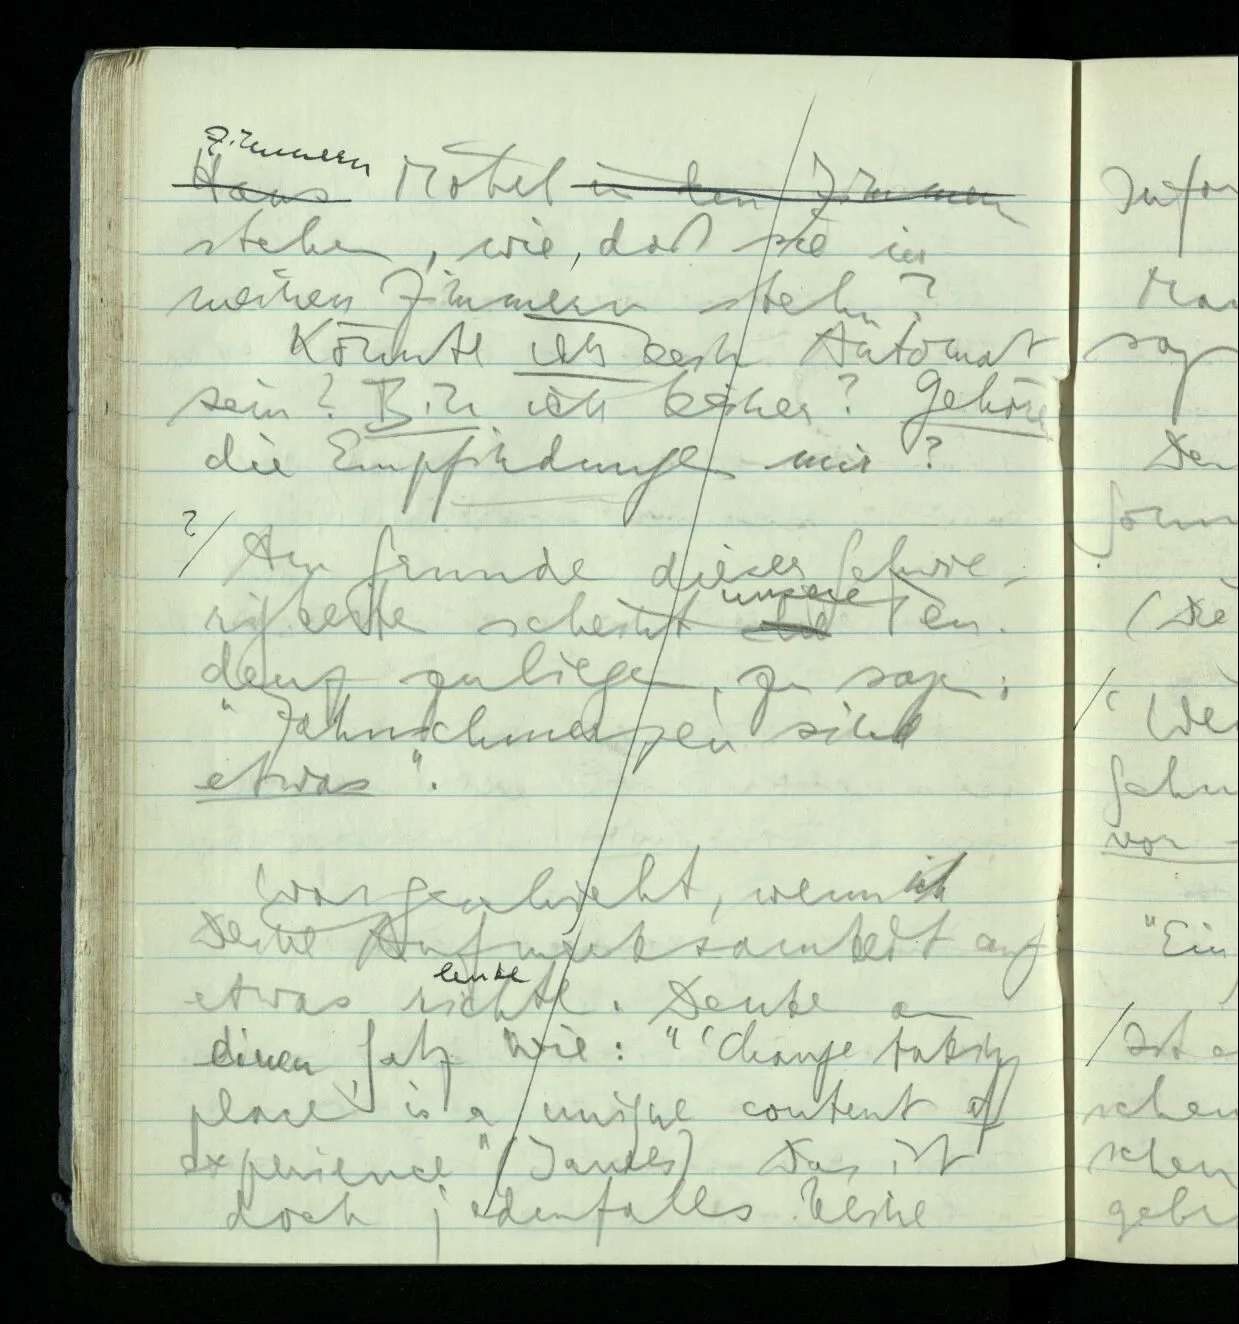 Zimmern
Haus Möbel in den Zimmern
stehen, wie, daß sie in
meinen Zimmern stehn?
Könnte ich kein Automat
sein? Bin ich keiner? Gehören
die Empfindungen mir?
?/ Am Grunde dieser Schwie-
unsere
rigkeite scheint die Ten-
denz zu liegen, zu sagen:
"Zahnschmerzen sind
etwas".
Was geschieht, wenn ich
Deine Aufmerksamkeit auf
lenke
etwas richte. Denke an
einen Satz wie: "'Change taking
place' is a unique content of
experience" (James) Das ist
doch jedenfalls keine
Infor
Man
sag
Den
(Die
/
vor
"Ein
/ Ist
schen
schen
geb